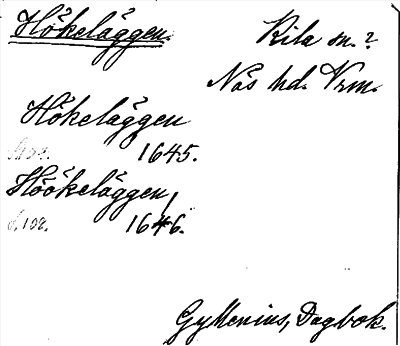 Hökeläggen. Kila sn.?
Näs hd. Vrm.
Hökeläggen
1645.
Höökeläggen,
s. 108. 1646.
Gyllenius, Dagbok.